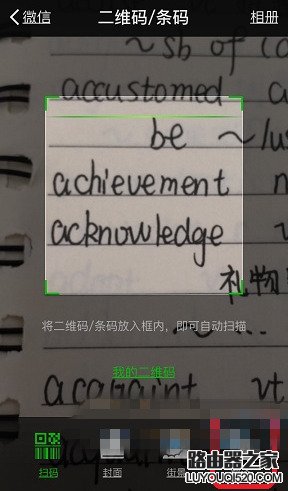 微信
二维码/条码
相册
~ sb of
accustomed
be ~/us
achievement
acknowledge
礼物
将二维码/条码放入框内，即可自动扫描
~...
我的二维码
acquaint vt
扫码
封面
街景
路由器之家
LUYOUQI.COM